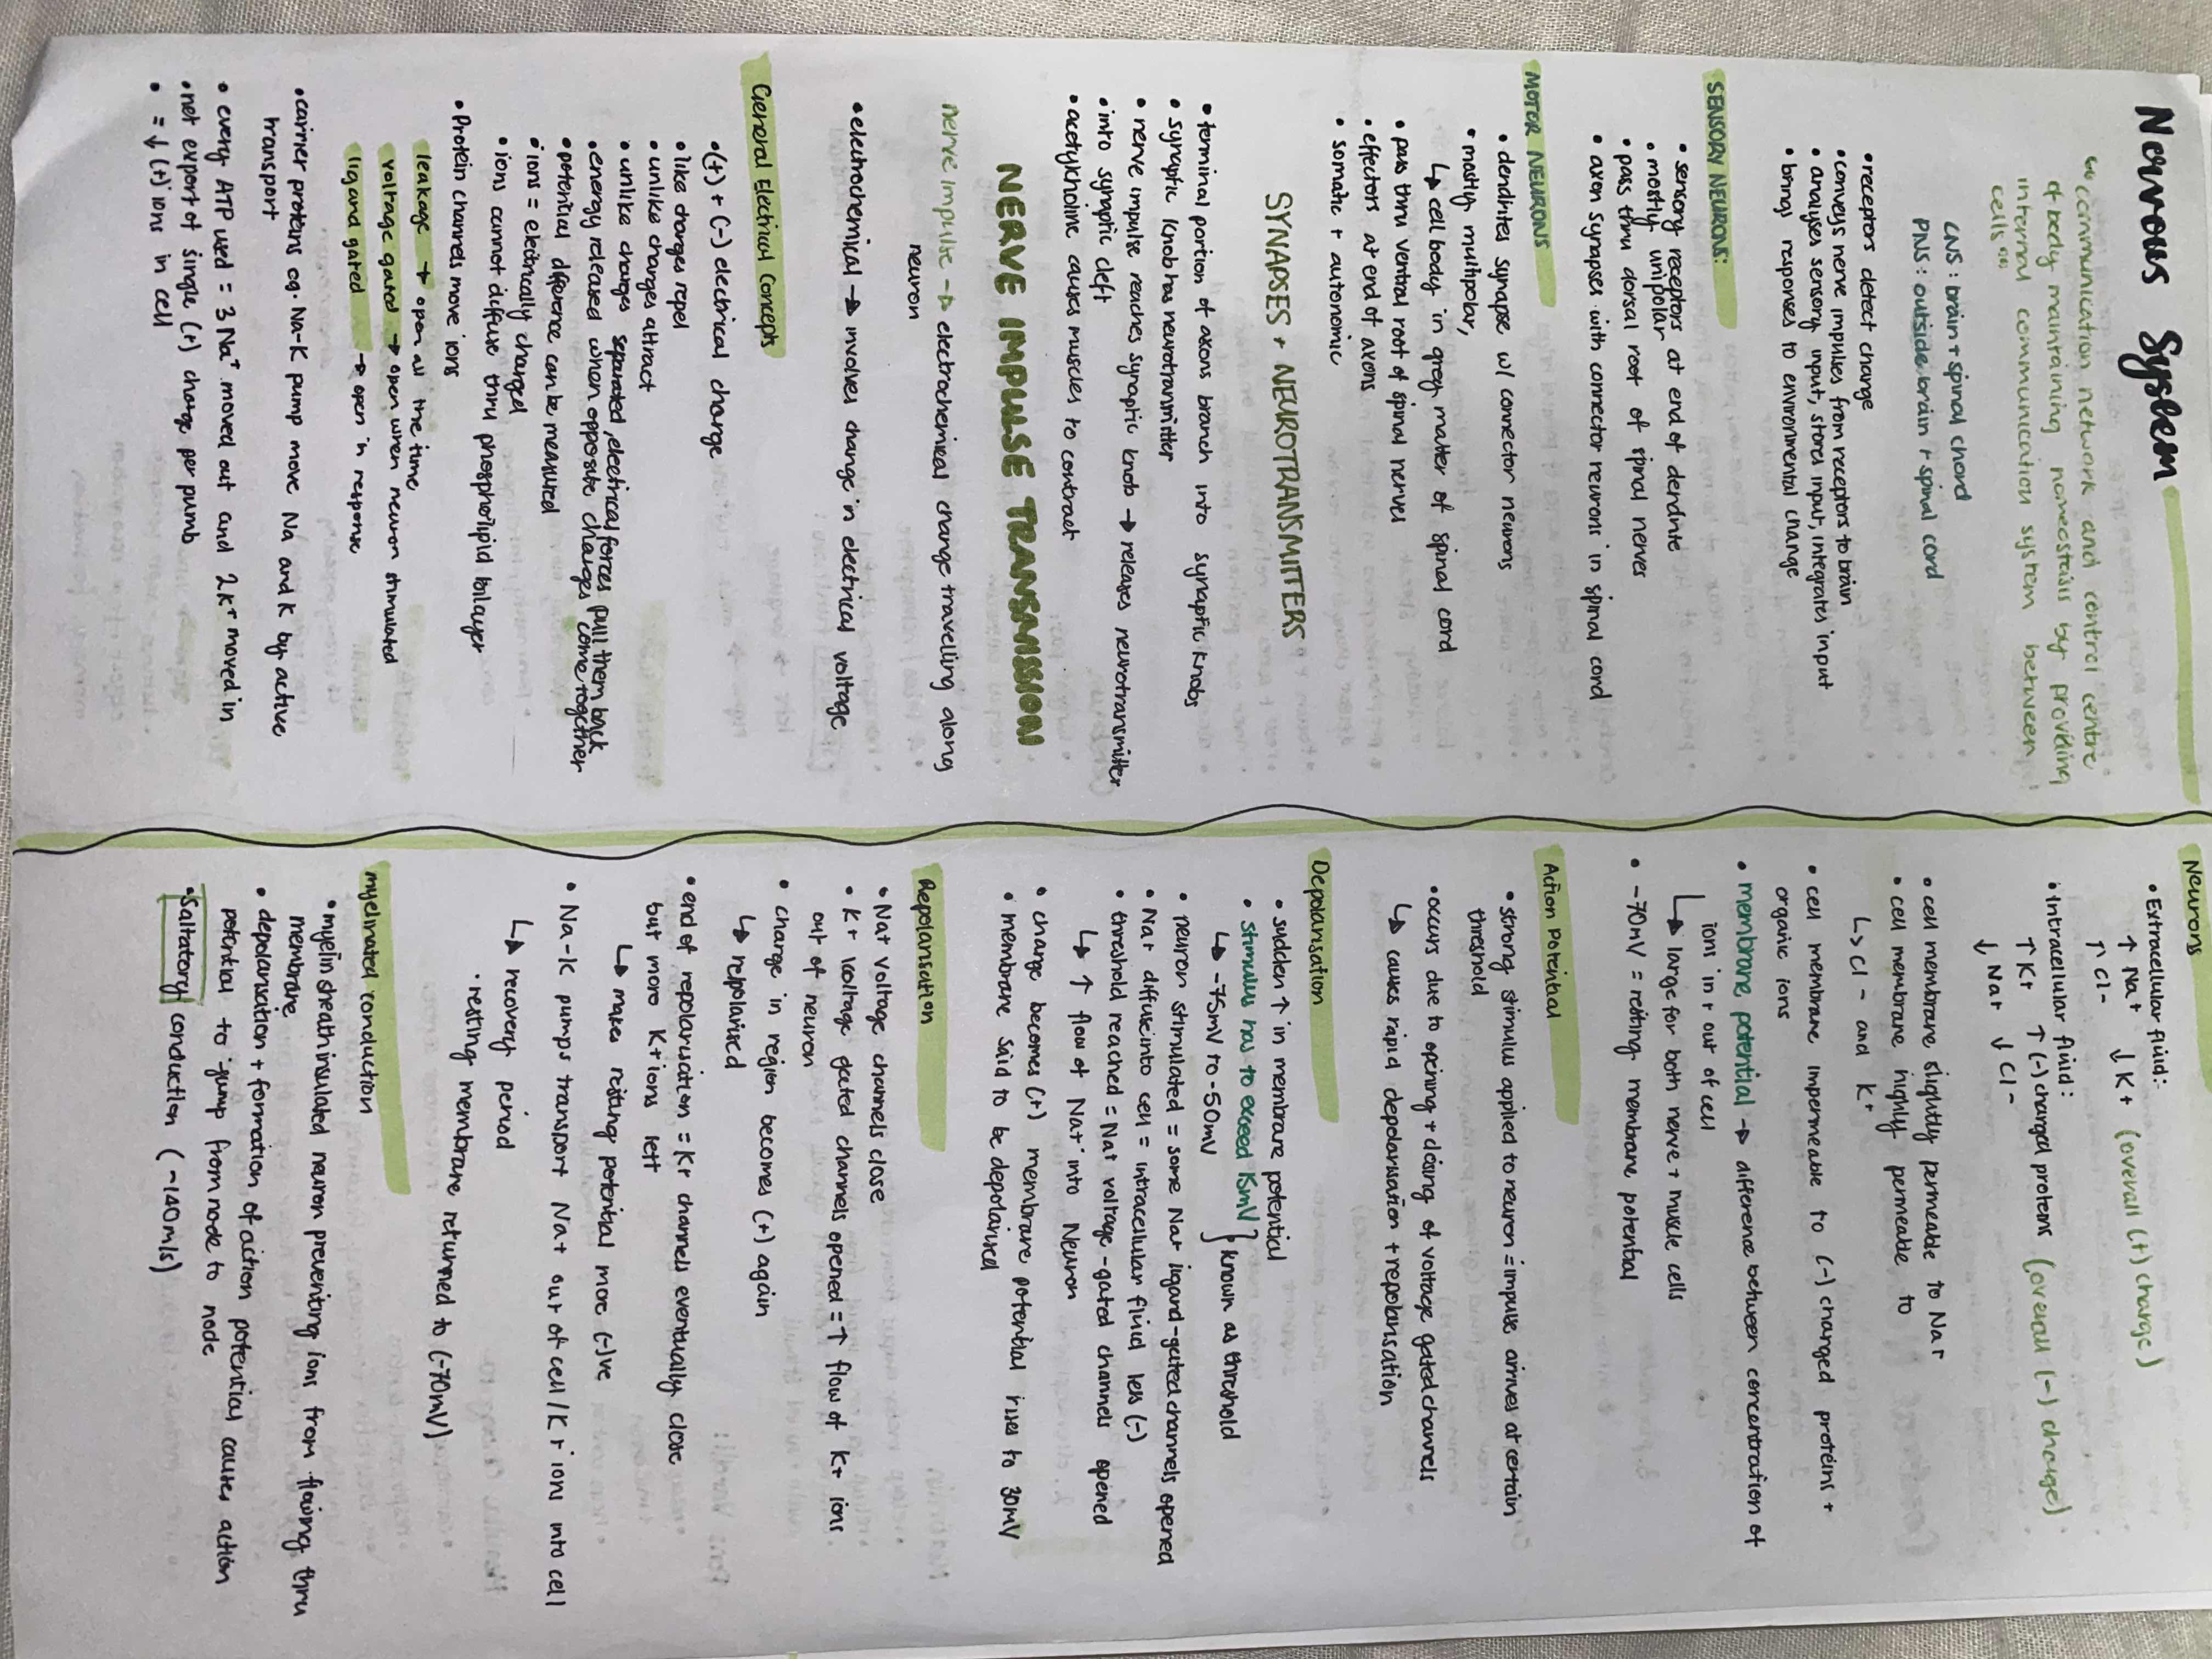 Nervous System
"communication network and control centre
of body maintaining homeostasis by providing
internal communication system between
cells"
CNS: brain + spinal chord
PNS: outside brain + spinal cord
• receptors detect change
• conveys nerve impulses from receptors to brain
• analyses sensory input, stores input, integrates input
• brings responses to environmental change
SENSORY NEURONS:
• sensory receptors at end of dendrite
• mostly unipolar
• pass thru dorsal root of spinal nerves
• axon synapses with connector neurons in spinal cord
MOTOR NEURONS
• dendrites synapse w/ connector neurons
• mostly multipolar,
↳ cell body in grey matter of spinal cord
• pass thru ventral root of spinal nerves
• effectors at end of axons
• somatic + autonomic
SYNAPSES + NEUROTRANSMITTERS
• terminal portion of axons branch into synaptic knobs
• synaptic knob has neurotransmitter
• nerve impulse reaches synaptic knob → releases neurotransmitter
• into synaptic cleft
• acetylcholine causes muscles to contract
NERVE IMPULSE TRANSMISSION
nerve impulse → electrochemical change travelling along
neuron
• electrochemical → involves change in electrical voltage
General Electrical Concepts
• (+) + (-) electrical charge
• like charges repel
• unlike charges attract
• unlike charges separated, electrical forces pull them back
• energy released when opposite charges come together
• potential difference can be measured
• ions = electrically charged
• ions cannot diffuse thru phospholipid bilayer
• Protein channels move ions
leakage → open all the time
voltage gated → open when neuron stimulated
ligand gated → open in response
• carrier proteins eg. Na-K pump move Na and K by active
transport
• every ATP used = 3 Na+ moved out and 2K+ moved in
• net export of single (+) charge per pumb
• = ↓ (+) ions in cell
Neurons
• Extracellular fluid:
↑ Na+ ↓ K+ (overall (+) charge)
↑ Cl-
• intracellular fluid:
↑ K+ ↑ (-) charged proteins (overall (-) charge)
↓ Na+ ↓ Cl-
• cell membrane slightly permeable to Na+
• cell membrane highly permeable to
↳ Cl- and K+
• cell membrane impermeable to (-) charged proteins +
organic ions
• membrane potential → difference between concentration of
ions in + out of cell
↳ large for both nerve + muscle cells
• -70mV = resting membrane potential
Action Potential
• strong stimulus applied to neuron = impulse arrives at certain
threshold
• occurs due to opening + closing of voltage gated channels
↳ causes rapid depolarisation + repolarisation
Depolarisation
• sudden ↑ in membrane potential
• stimulus has to exceed 15mV } known as threshold
↳ -75mV to -50mV
• neuron stimulated = some Na+ ligand-gated channels opened
• Na+ diffuse into cell = intracellular fluid less (-)
• threshold reached = Na+ voltage-gated channels opened
↳ ↑ flow of Na+ into Neuron
• change becomes (+) membrane potential rises to 30mV
• membrane said to be depolarised
Repolarisation
• Na+ voltage channels close
• K+ voltage gated channels opened = ↑ flow of K+ ions
out of neuron
• change in region becomes (+) again
↳ repolarised
• end of repolarisation = K+ channels eventually close
but more K+ ions left
↳ makes resting potential more (-)ve
• Na-K pumps transport Na+ out of cell / K+ ions into cell
↳ recovery period
• resting membrane returned to (-70mV)
myelinated conduction
• myelin sheath insulated neuron preventing ions from flowing thru
membrane
• depolarisation + formation of action potential causes action
potential to jump from node to node
• Saltatory conduction (~140m/s)